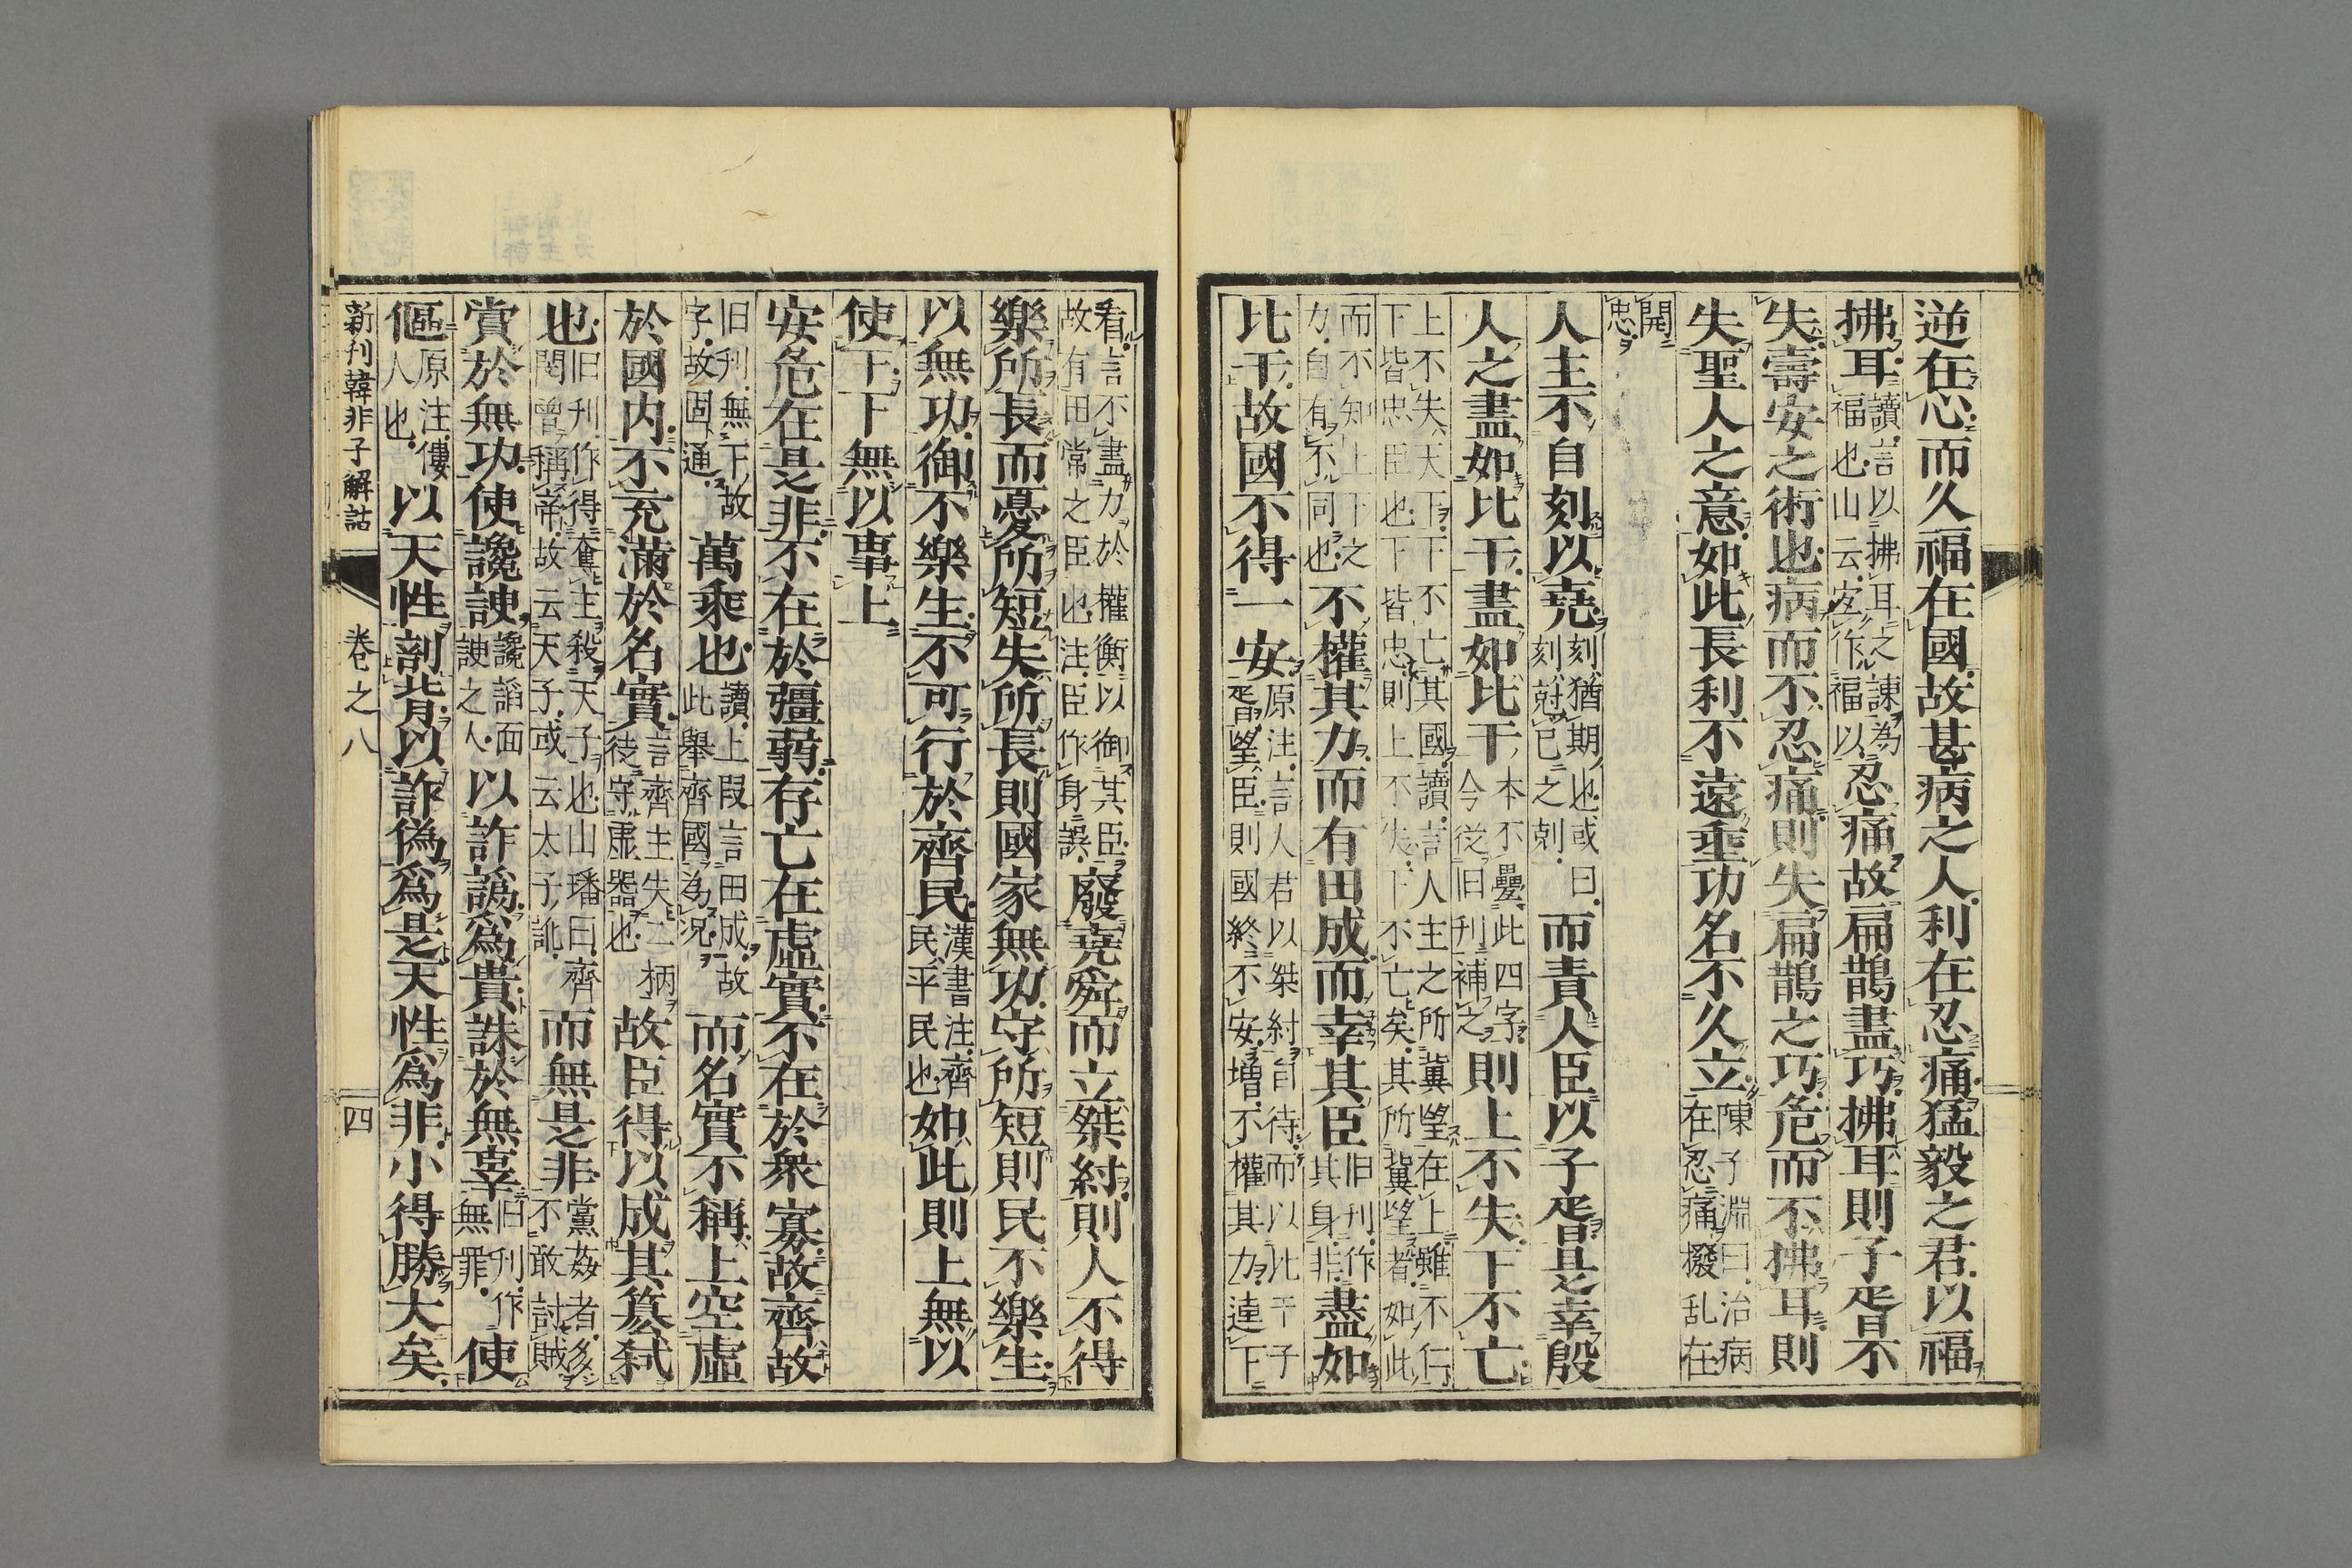 逆在心而久福在國故甚病之人利在忍痛猛毅之君以福
拂耳讀言以拂耳之諫為福也山云定作福以忍痛故扁鵲盡巧拂耳則子胥不
失壽安之術也病而不忍痛則失扁鵲之巧危而不拂耳則
失聖人之意如此長利不遠垂功名不久立陳子淵曰治病在忍痛撥乱在
開忠
人主不自刻以堯刻猶期也或曰刻尅己之剋而責人臣以子胥是幸殷
人之盡如比干盡如比干本不疊此四字今從旧刊補之則上不失下不亡
上不失天下下不亡其國讀言人主之所冀望在上雖不仁下皆忠臣也下皆忠則上不失下不亡矣其所冀望者如此
而不知上下之力自有不同也不權其力而有田成而幸其臣旧刊作其身非盡如
比干故國不得一安原注言人君以桀紂自待而以比干子胥望臣則國終不安増不權其力連下
看言不盡力於權衡以御其臣故有田常之臣也注臣作身誤廢堯舜而立桀紂則人不得
樂所長而憂所短失所長則國家無功守所短則民不樂生
以無功御不樂生不可行於齊民漢書注齊民平民也如此則上無以
使下下無以事上
安危在是非不在於彊弱存亡在虛實不在於衆寡故齊故
旧刊無下故字故固通萬乘也讀上叚言田成故此舉齊國為況而名實不稱上空虛
於國内不充滿於名實言齊主失二柄徒守虛器也故臣得以成其篡弑
也旧刊作得奪主殺天子也山璠曰齊閔曾稱帝故云天子或云太子訛而無是非黨姦者多不敢討賊
賞於無功使讒諛讒謟面諛之人以詐譌爲貴誅於無辜旧刊作無罪使
傴原注僂人也以天性剖背以詐偽爲是天性爲非小得勝大矣
新刊韓非子解詁 卷之八 四